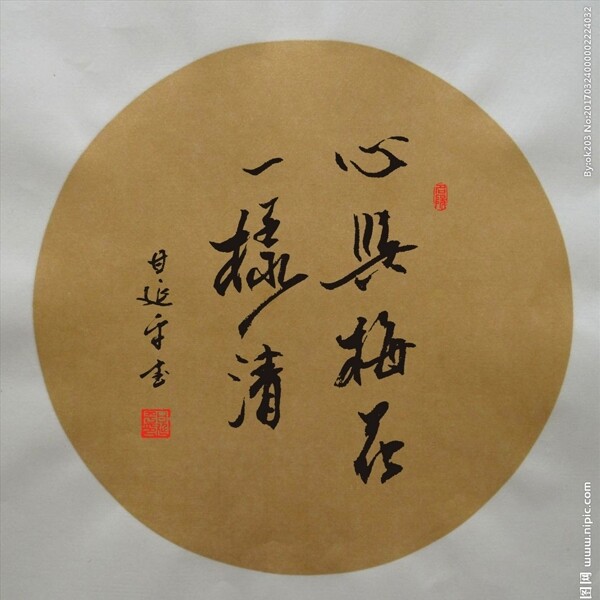 心與梅花
一樣清
甘延平書
By:ok203 No:20170324000002224032
图网 www.nipic.com